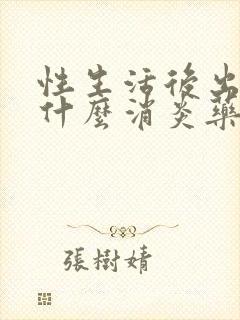 性生活後出
什麼消炎藥
張樹婧